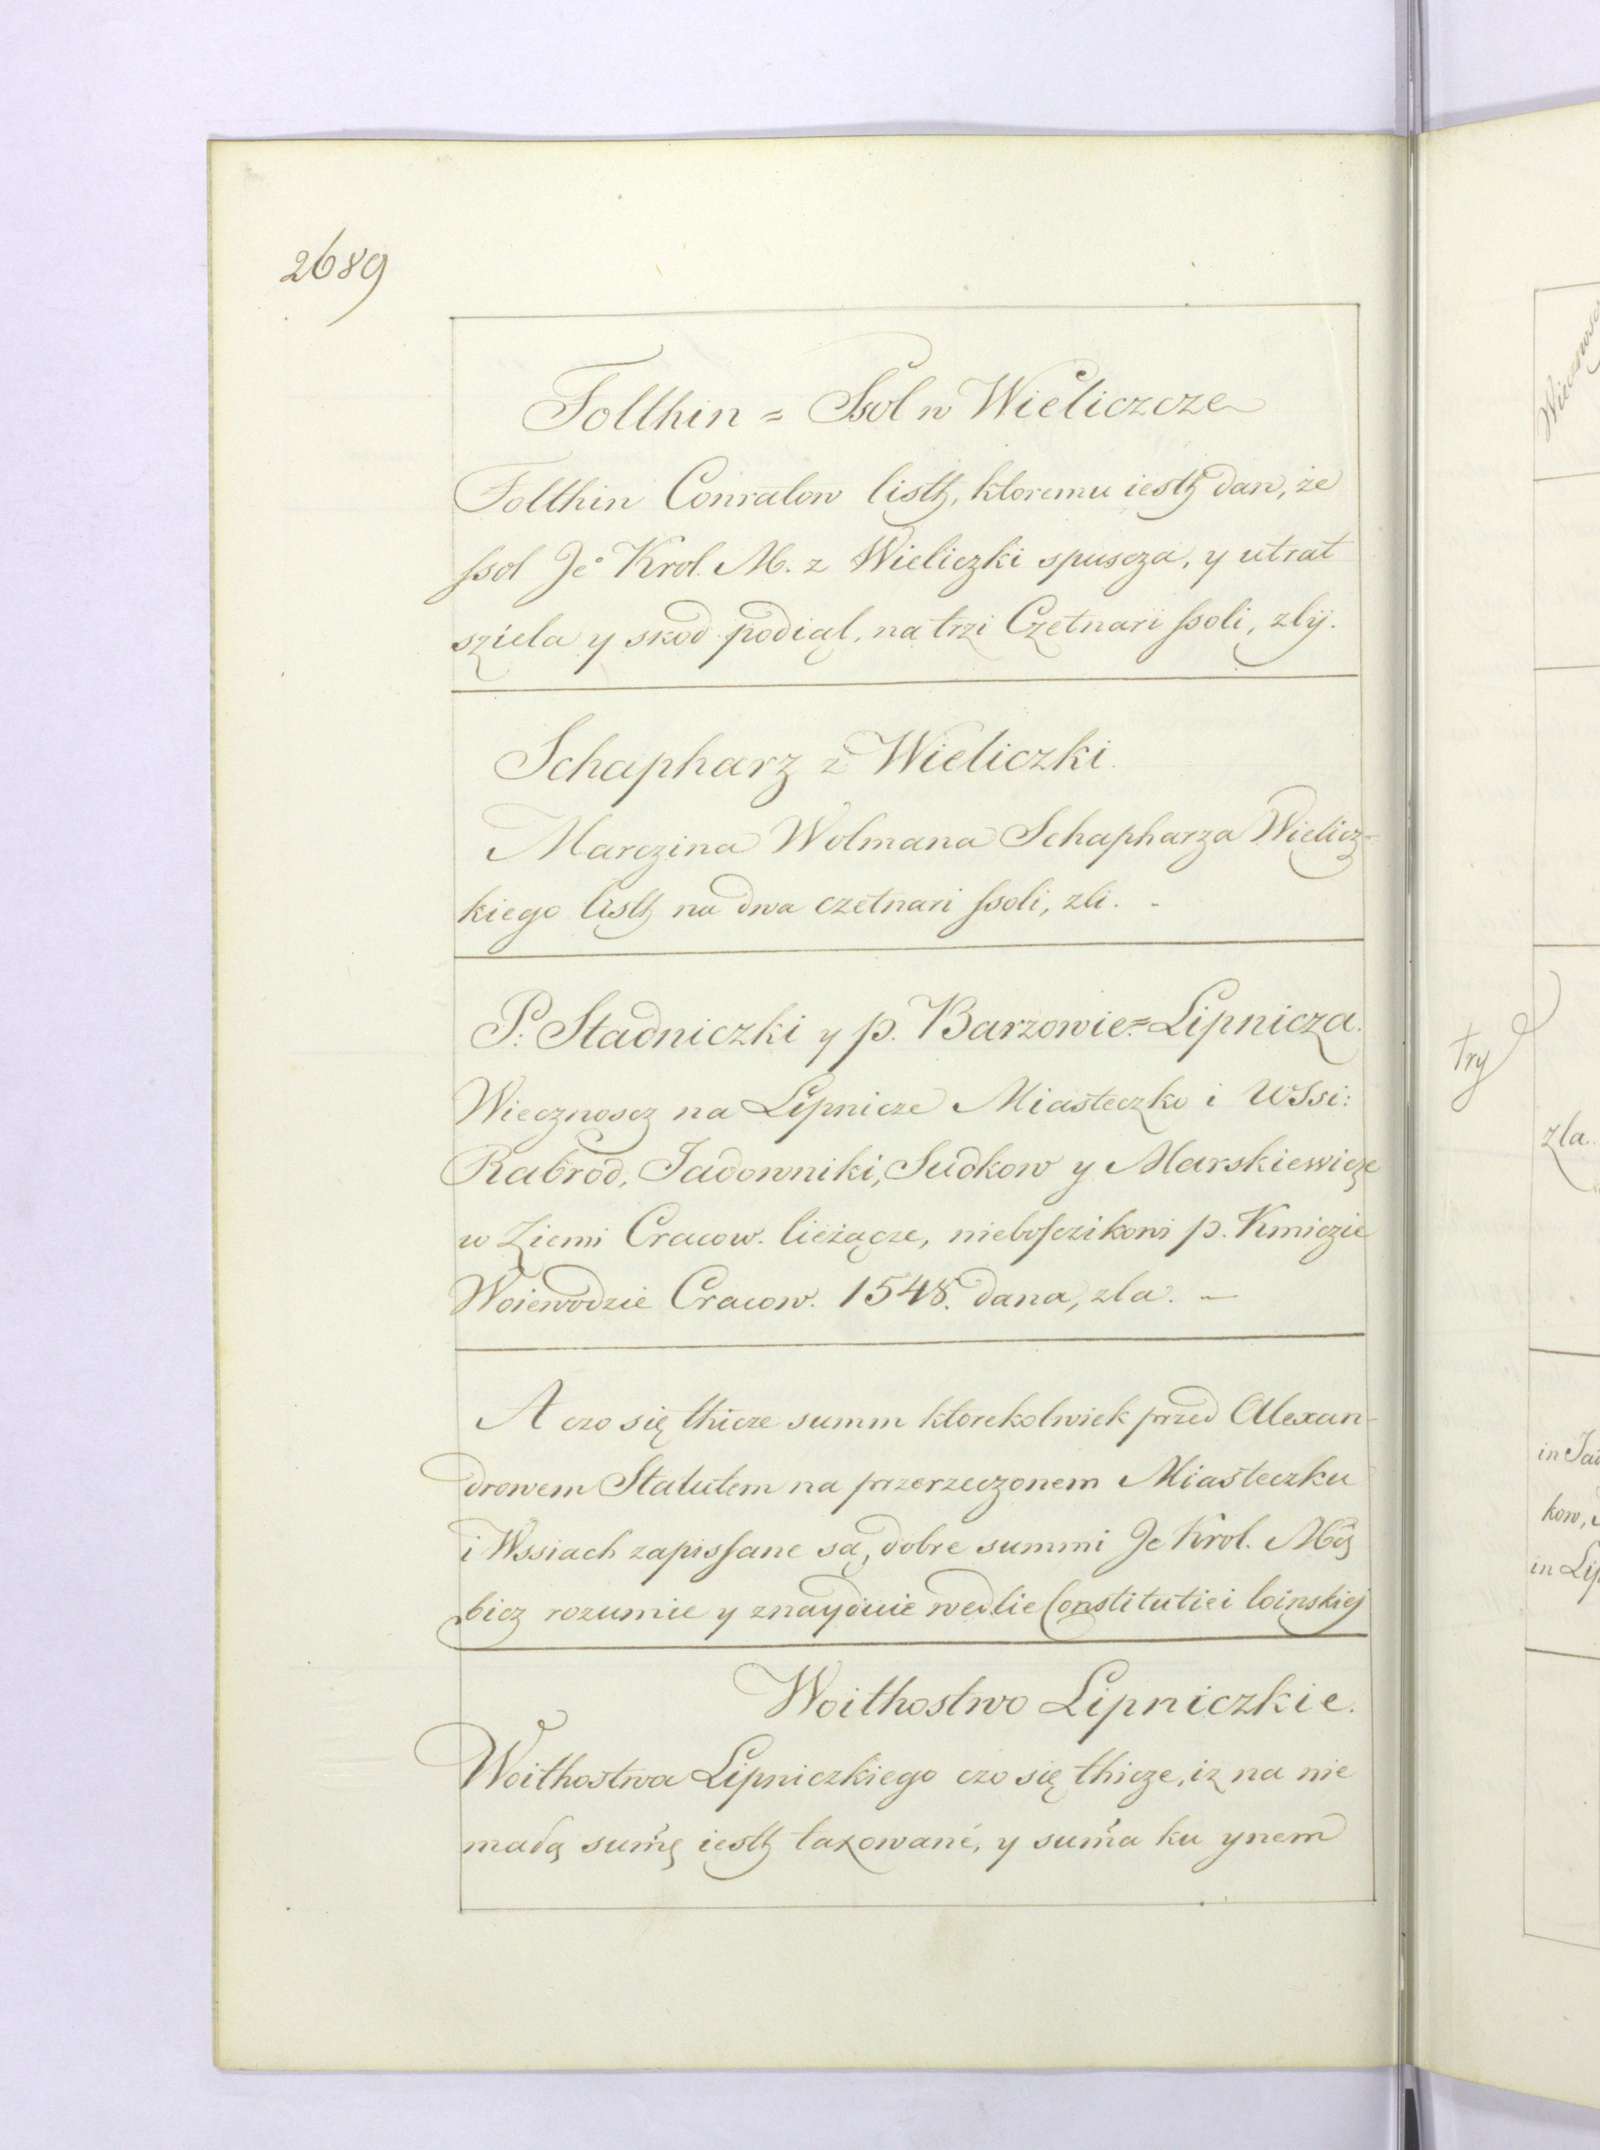 2689
Folthin = Ssol w Wieliczcze
Folthin Conratow listh, ktoremu iesth dan, że
ssol Je° Krol. M. z Wieliczki spuscza, y utrat
sziela y skod podiąl, na trzi Czetnari ssoli, zly.
Schapharz z Wieliczki.
Marczina Wolmana Schapharza Wielicz-
kiego listh na dwa czetnari ssoli, zli. -
P: Stadniczki y p. Barzowie = Lipnicza.
Wiecznoscz na Lipnicze Miasteczko i Wssi:
Rabrod, Jadowniki, Sudkow y Marskiewicze
w Ziemi Cracow. lieżącze, niebosczikowi p. Kmiczie
Woiewodzie Cracow. 1548. dana, zla. —
A czo się thicze summ ktorekolwiek przed Alexan-
drowem Statutem na przerzeczonem Miasteczku
i Wssiach zapissane są, dobre summi Je Krol. Mcź
bicz rozumie y znayduie wedlie Constitutiei loinskiej
Woithostwo Lipniczkie.
Woithostwa Lipniczkiego czo się thicze, iz na nie
madą sumę iesth taxowané, y suma ku ynem
try
zla.
in Jad
kow,
in Lip